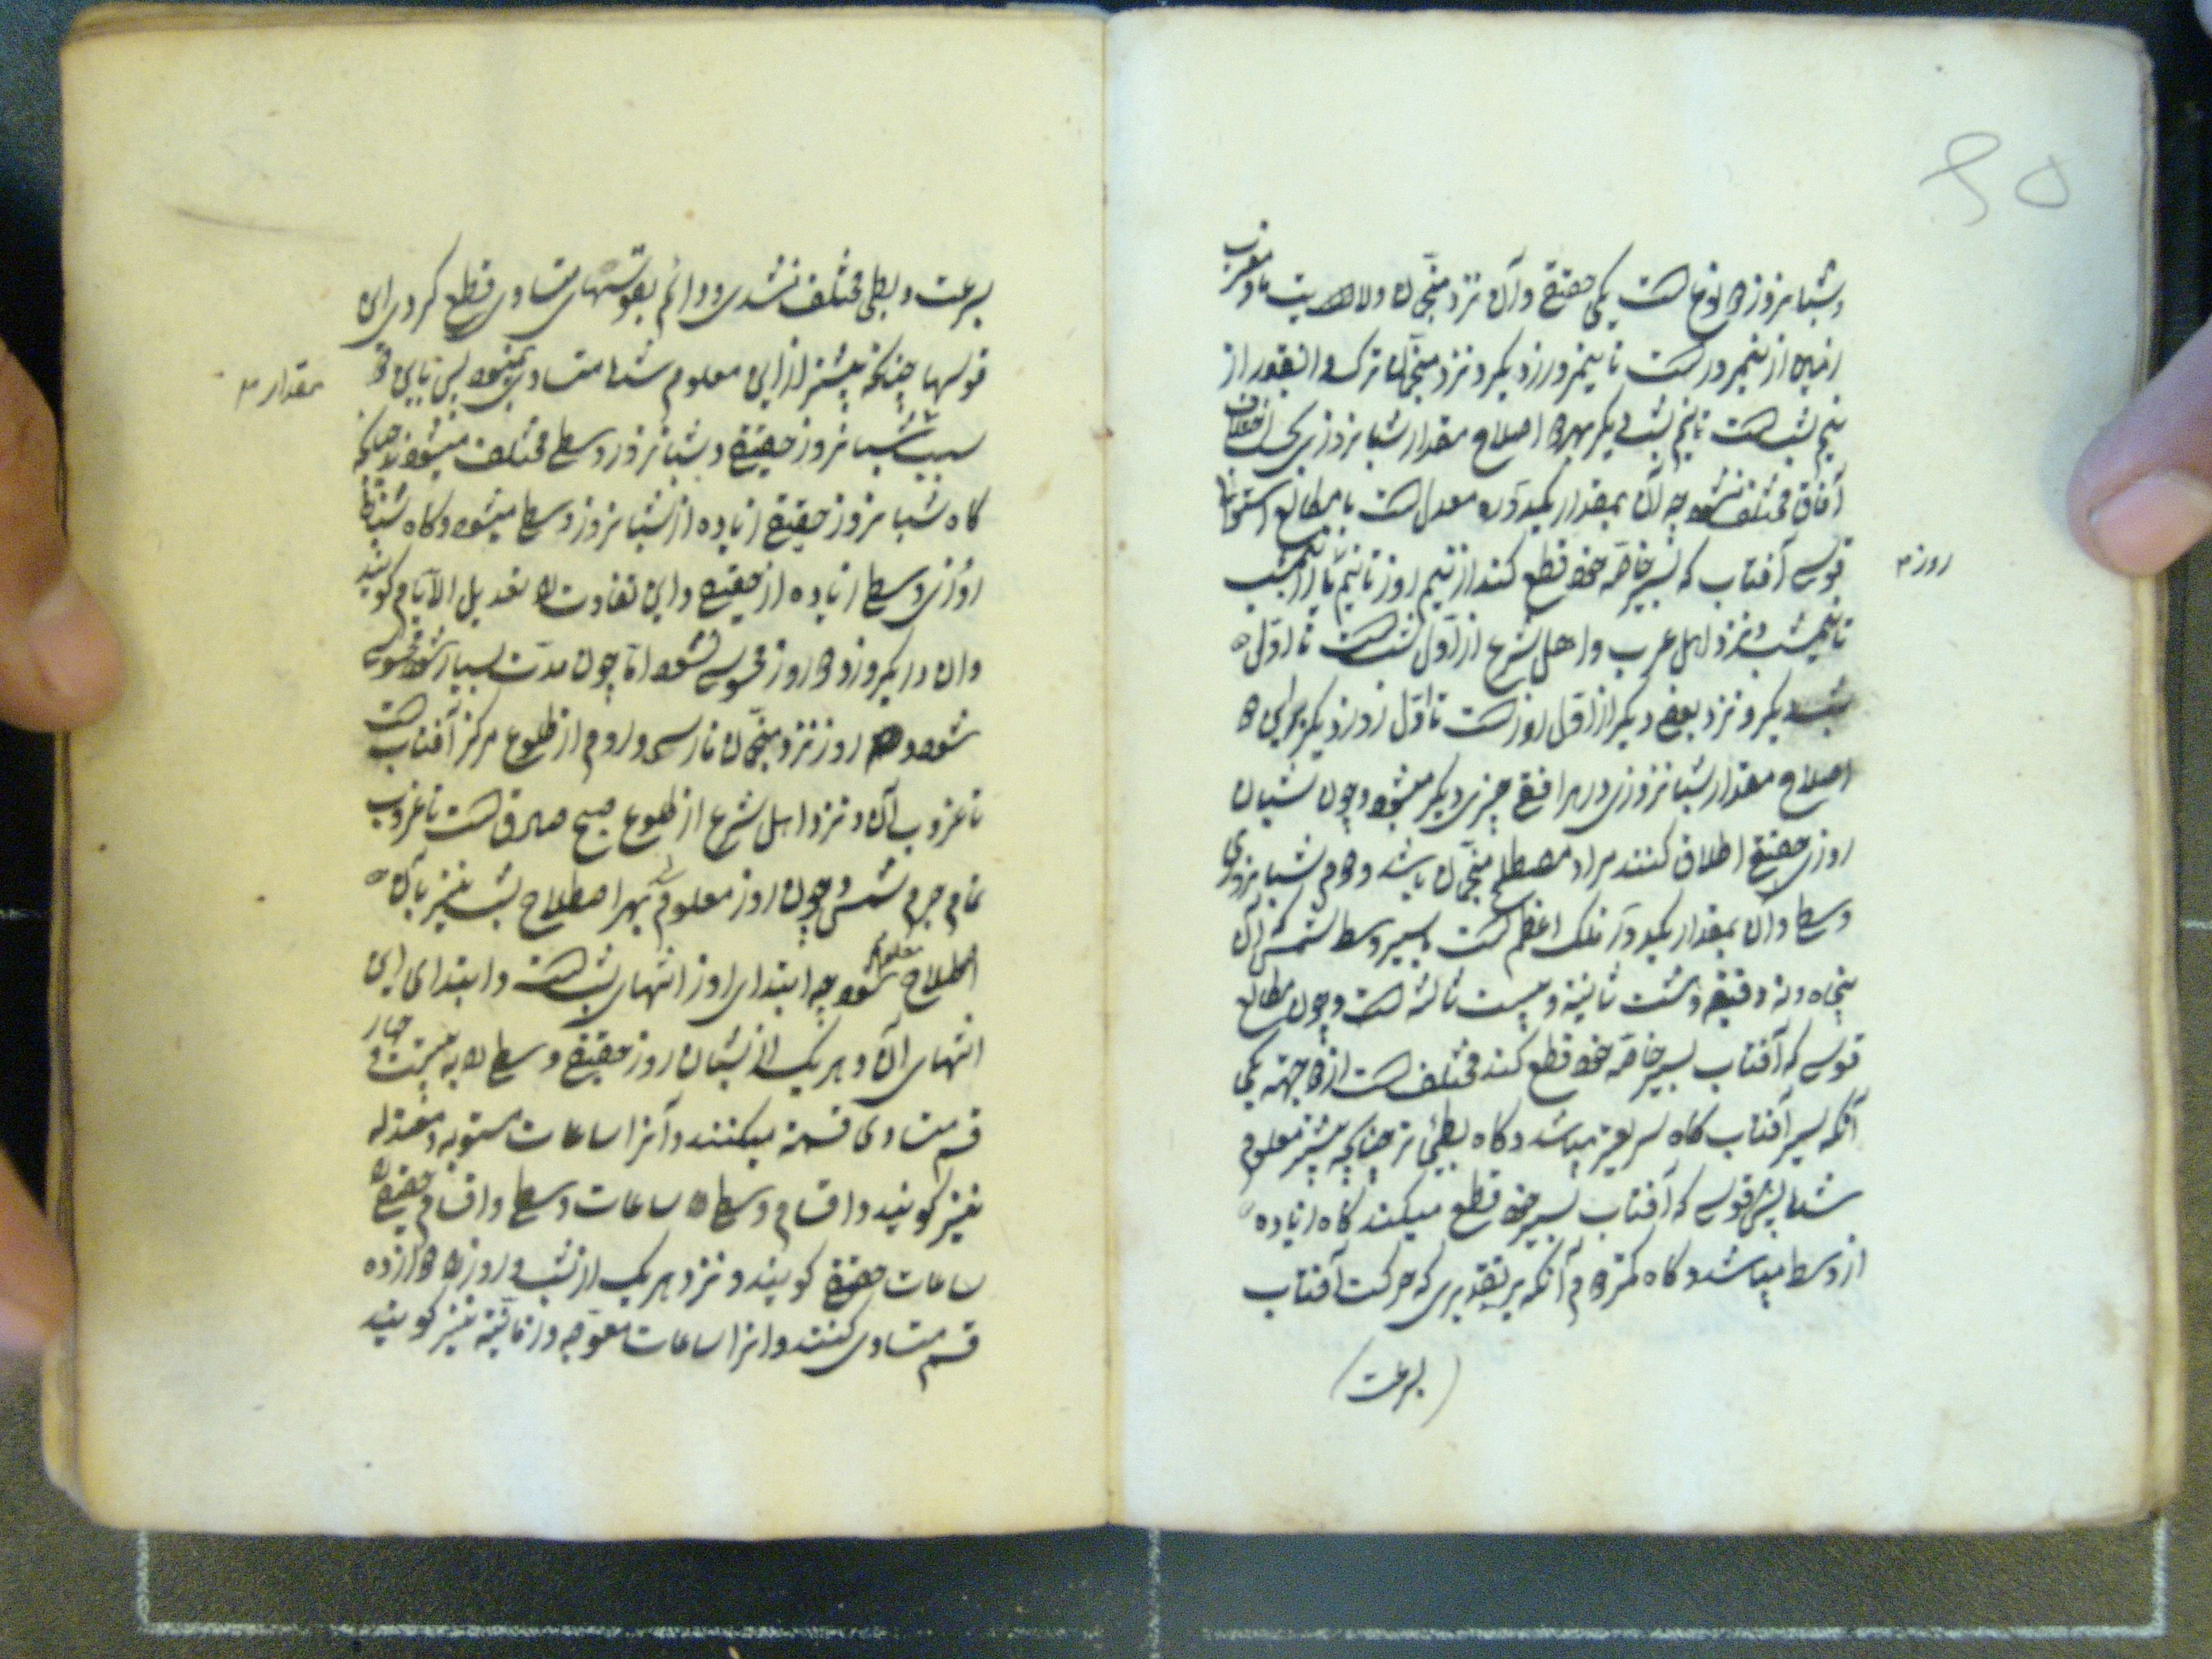 و شبانروز دو نوع است یکی حقیقی و آن نزد منجمان ولایت ما و مغرب
زمین از نیمروز است تا نیمروز دیگر و نزد منجمان ترک و ایغور از
نیم شب است تا نیم شب دیگر بهر دو اصطلاح مقدار شبانروزی بحسب اختلاف
آفاق مختلف نشود چه آن بمقدار یکدوره معدل است با مطالع استوائی
قوسی آفتاب که بسیر خاصه خود قطع کند از نیم روز تا نیم روز یا از نیمشب
روز
تا نیمشب و نزد اهل عرب و اهل شرع از اول شب است تا اول
شب دیگر و نزد بعضی دیگر از اول روز است تا اول روز دیگر برین دو
اصطلاح مقدار شبانروزی در هر افقی چیزی دیگر میشود و چون شبان
روزی حقیقی اطلاق کنند مراد مصطلح منجمان باشد دوم شبانروزی
وسطی و آن بمقدار یکدور فلک اعظم است با سیر وسط شمس که آن
پنجاه و نه دقیقه و هشت ثانیه و بیست ثالثه است و چون مطالع
قوسی که آفتاب بسیر خاصه خود قطع کند مختلف است از دو جهته یکی
آنکه سیر آفتاب گاه سریعتر میباشد و گاه بطیئ تر چنانچه پیشتر معلوم
شد پس قوسی که آفتاب بسیر خود قطع میکند گاه زیاده
از وسط میباشد و گاه کمتر دوم آنکه بر تقدیری که حرکت آفتاب
(بسرعت)
بسرعت و بطئ مختلف نشدی و دائم بقوسهای متساوی قطع کردی این
قوسها چنانکه پیشتر ازین معلوم شد متساوی نمیبود پس باین دو
مقدار
سبب شبانروز حقیقی و شبانروز وسطی مختلف میشوند چنانکه
گاه شبانروز حقیقی زیاده از شبانروز وسطی میشود و گاه شبان
روزی وسطی زیاده از حقیقی و این تفاوت را تعدیل الایام گویند
و ان در یکروز و دو روز محسوس نشود اما چون مدت بسیار شود محسوس
شود و روز نزد منجمان فارس و روم از طلوع مرکز آفتاب است
تا غروب آن و نزد اهل شرع از طلوع صبح صادق است تا غروب
تمام جرم شمس و چون روز معلوم شد بهر اصطلاح شب نیز بآن
اصطلاح معلوم شود چه ابتدای روز انتهای شب است و ابتدای این
انتهای آن و هر یک از شبان روز حقیقی و وسطی را به بیست و چهار
قسم متساوی قسمة میکنند و آنرا ساعات مستویه و معتدله
نیز گویند و اقسام وسطی را ساعات وسطی و اقسام حقیقی را
ساعات حقیقی گویند و نزد هر یک از شب و روز را دوازده
قسم متساوی کنند و انرا ساعات معوجه و زمانیه نیز گویند